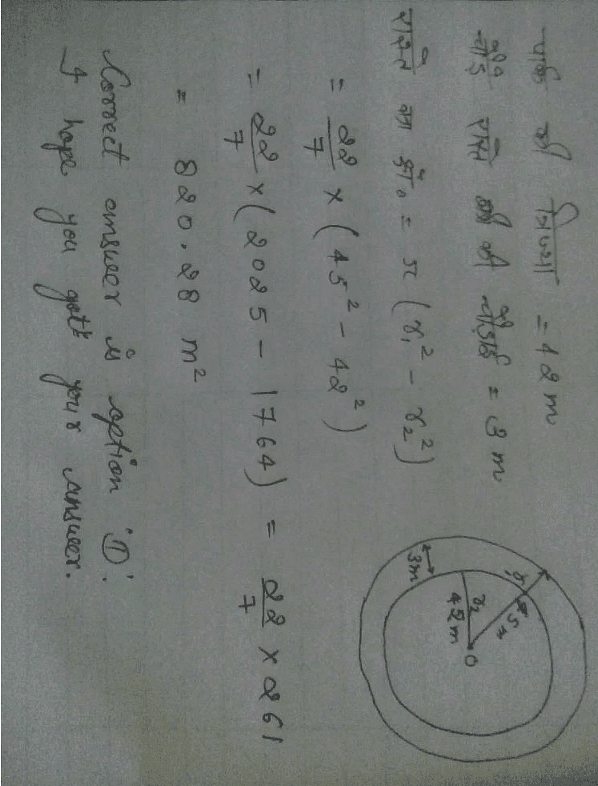 पार्क की त्रिज्या = 42 m
चौड़े रास्ते की की चौड़ाई = 3 m
रास्ते का क्षे० = π (r₁² - r₂²)
= 22/7 × (45² - 42²)
= 22/7 × (2025 - 1764) = 22/7 × 261
= 820.28 m²
Correct answer is option '①'.
I hope you gott your answer.
3m
r₂
42m
5m
O